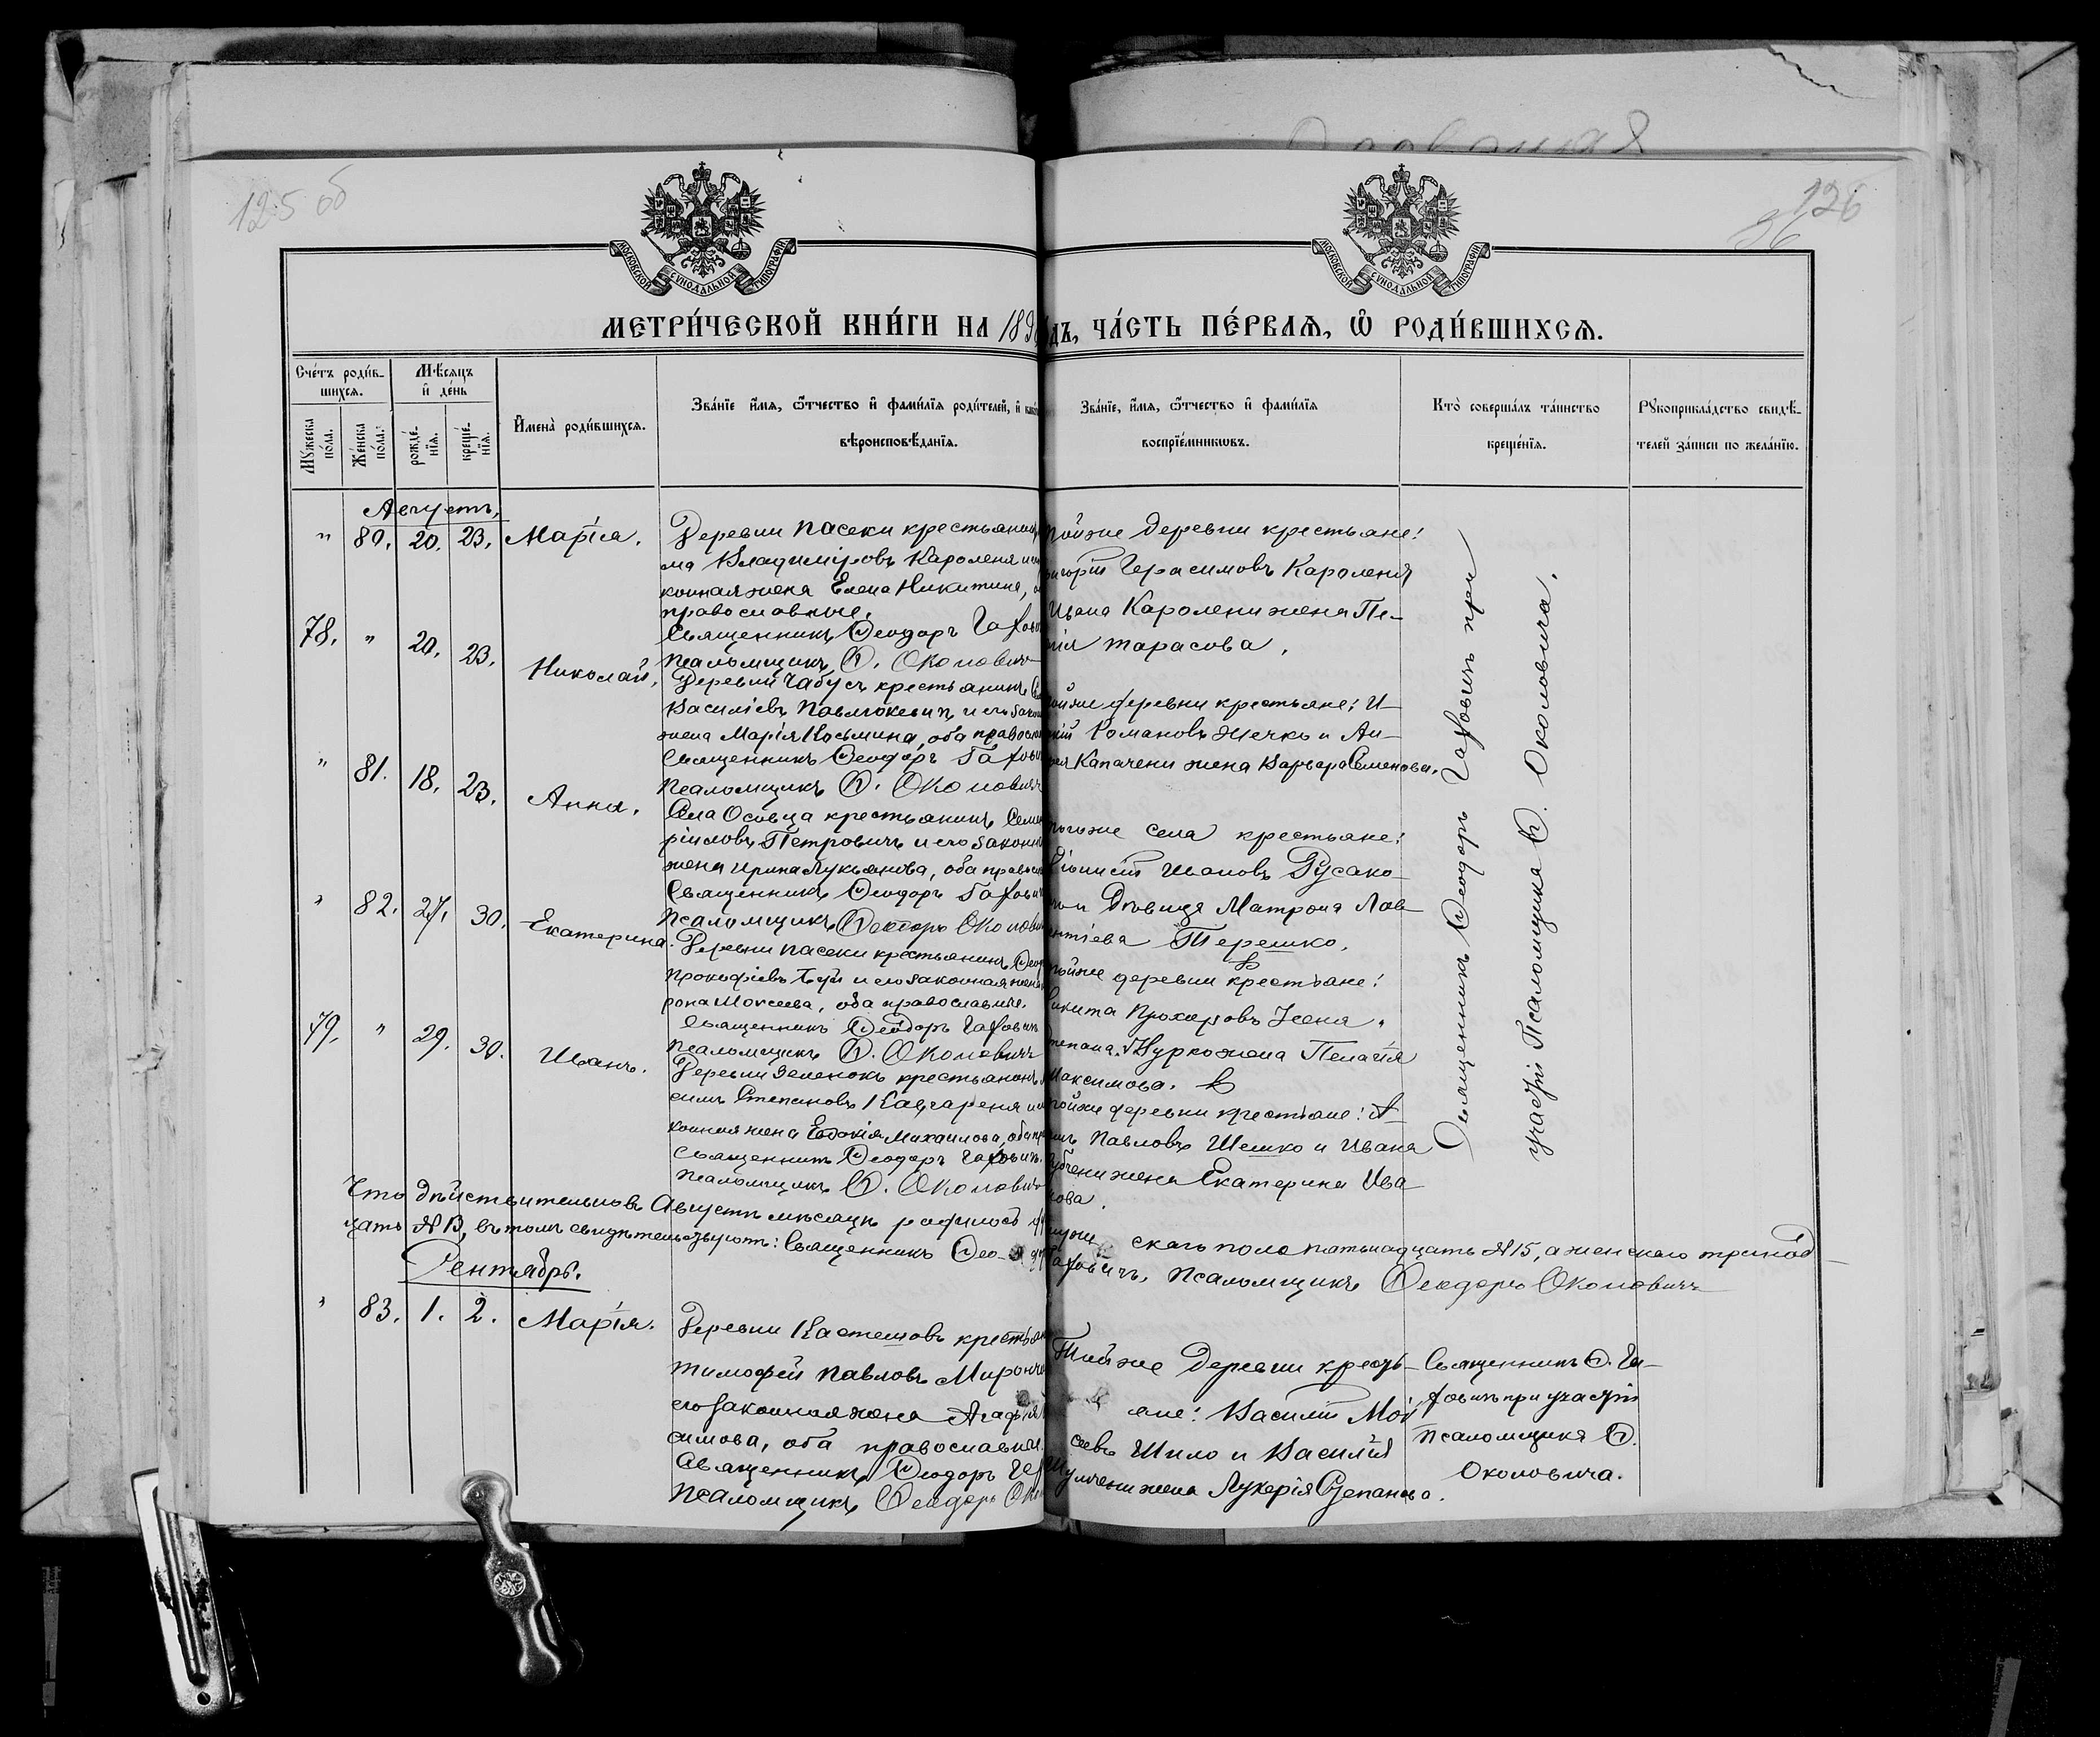 125 об
126
МОСКОВСКОЙ СУНОДАЛЬНОЙ ТИПОГРАФІИ
МОСКОВСКОЙ СУНОДАЛЬНОЙ ТИПОГРАФІИ
МЕТРИ́ЧЕСКОЙ КНИ́ГИ НА 189 ДЪ, ЧА́СТЬ ПЕ́РВАѦ, Ѽ РОДИ́ВШИХСѦ.
Сче́тъ роди́в-
шихсѧ.
Мꙋжеска по́ла.
Же́нска по́ла.
Мѣ́сѧцъ
и҆ де́нь
рожде́-
нїѧ.
креще́-
нїѧ.
И҆мена̀ роди́вшихсѧ.
Зва́нїе и҆́мѧ, ѻ҆́тчество и҆ фами́лїѧ роди́телей, и҆
вѣроисповѣ́данїѧ.
Зва́нїе, и҆́мѧ, ѻ҆́тчество и҆ фами́лїѧ
воспрїе́мникѡвъ.
Кто̀ соверша́лъ та́инство
креще́нїѧ.
Рꙋкоприкла́дство свидѣ́-
телей за́писи по жела́нїю.
Августъ.
" 80. 20. 23. Марія.
Деревни Пасеки крестьянинъ
ма Владиміровъ Кароленя и
конная жена Елена Никитина,
православные.
Священникъ Ѳеодоръ Гахович
Псаломщикъ Ѳ. Околович
тойже деревни крестьяне:
Герасимовъ Кароленя
Ивана Каролени жена Пе-
Тарасова.
78. " 20. 23. Николай.
Деревни Чабусъ крестьянинъ
Василіевъ Павлюкевич и его закон
жена Марія Косьмина, оба правосл
Священникъ Ѳеодоръ Гахови
Псаломщикъ Ѳ. Околович
тойже деревни крестьяне: И-
Романовъ Жечко и Ан-
Капачени жена Варвара Семенова.
" 81. 18. 23. Анна.
Села Осовца крестьянинъ Семе
ріиловъ Петровичъ и его законн
жена Ирина Лукьянова, оба правосл
Священникъ Ѳеодоръ Гахович
Псаломщикъ Ѳеодоръ Околови
тогоже села крестьяне:
Ивановъ Русако-
и Дѣвица Матрона Лав-
рентіева Терешко.
" 82. 27. 30. Екатерина.
Деревни Пасеки крестьянинъ Ѳеод
Прокофіевъ Буй и его законная жена
рона Моисеева, оба православные.
Священникъ Ѳеодоръ Гахович
Псаломщикъ Ѳ. Околович
тойже деревни крестьяне:
Никита Прохоровъ
Степана Журко жена Пелагія
Максимова.
79. " 29. 30. Иванъ.
Деревни Зеленокъ крестьянинъ
симъ Степановъ Кавгареня и
конная жена Евдокія Михаилова, оба пр
Священникъ Ѳеодоръ Гахович.
Псаломщикъ Ѳ. Околович
тойже деревни крестьяне: А-
Павловъ Шешко и Ивана
жена Екатерина Ива-
нова.
Священникъ Ѳеодоръ Гаховичъ при
участіи Псаломщика Ѳ. Околовича.
Что дѣйствительно въ Августѣ мѣсяцѣ родилось скаго пола пятьнадцать №15, а женскаго тринад-
цать №13, въ томъ свидѣтельствуютъ: Священникъ Ѳеодоръ Гаховичъ, Псаломщикъ Ѳеодоръ Околовичъ
Сентябрь.
" 83. 1. 2. Марія.
Деревни Кастешовъ крестьян
Тимофей Павловъ Миронч
его законная жена Агафія
симова, оба православные.
Священникъ Ѳеодоръ Гах
Псаломщикъ Ѳеодоръ Око
Тойже деревни кресть-
яне: Василій Мой-
сеевъ Шило и Василія
жена Лукерія Степанова.
Священникъ Ѳ. Га-
ховичъ при участіи
Псаломщика Ѳ.
Околовича.